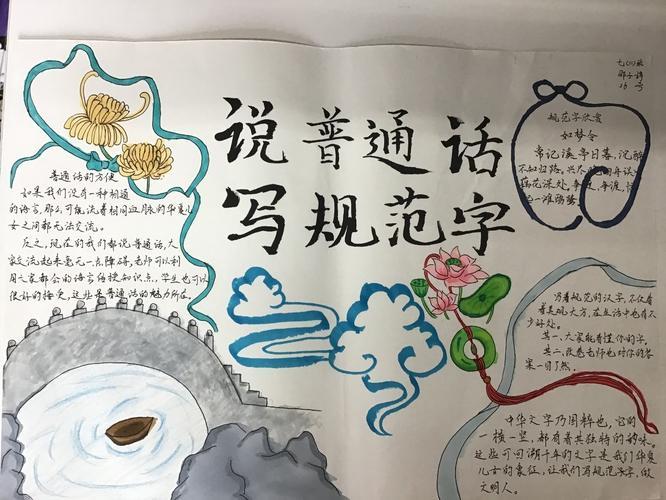 说普通话
写规范字
普通话的方便
如果我们没有一种相通
的语言,那么可能流着相同血脉的华夏儿
女之间都无法交流。
反之,现在的我们都说普通话,大
家交流起来毫无一点障碍,老师可以利
用大家都会的语言传授知识点,学生也可以
很好的接受,这些是普通话的魅力所在。
16号
规范字欣赏
如梦令
常记溪亭日暮,沉醉
不知归路。兴尽
藕花深处。争渡,争渡,
一滩鸥鹭
写着规范的汉字,不仅看
着美观大方,在生活中也有不
少好处。
其一、大家能看懂你的字。
其二、改卷老师也对你的答
案一目了然。
中华文字乃国粹也,它的
一横一竖,都有着其独特的韵味。
这些可回溯千年的文字是我们华夏
儿女的象征,让我们写规范汉字,做
文明人。